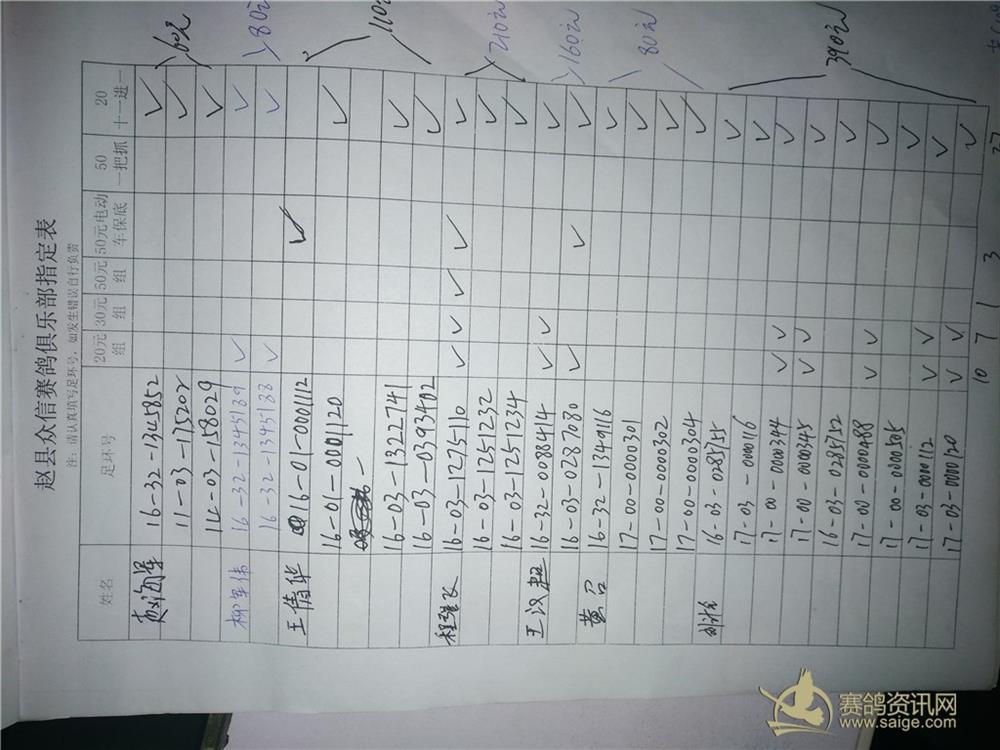 赵县众信赛鸽俱乐部指定表
注：请认真填写足环号，如发生错误自行负责
姓名 足环号 20元组 30元组 50元组 50元电动车保底 50一把抓 20十一进一
16-32-1345852 ✓
11-03-115202 ✓ 60元
14-03-158029 ✓
柳军伟 16-32-1345189 ✓ ✓
16-32-1345188 ✓ ✓ 80元
王倩华 16-01-0001112 ✓
16-01-0001120 ✓ 110元
16-03-1322741 ✓
16-03-0393402 ✓
16-03-1275110 ✓ ✓ ✓ ✓ ✓
16-03-1251232 ✓ 210元
16-03-1251234 ✓
王汉超 16-32-0088414 ✓ ✓ ✓
16-03-0287080 ✓ ✓ ✓ 160元
黄召 16-32-1349116 ✓
17-00-0000301 ✓
17-00-0000302 ✓ 80元
17-00-0000304 ✓
16-03-0285755 ✓
17-03-0000116 ✓
17-00-0000344 ✓ ✓ ✓
17-00-0000345 ✓ ✓ ✓
16-03-0285752 ✓ 390元
17-00-0000488 ✓ ✓ ✓
17-00-0000505 ✓
17-03-0000112 ✓ ✓ ✓
17-03-0000120 ✓ ✓ ✓
10 7 1 3 27
赛鸽资讯网
www.saige.com